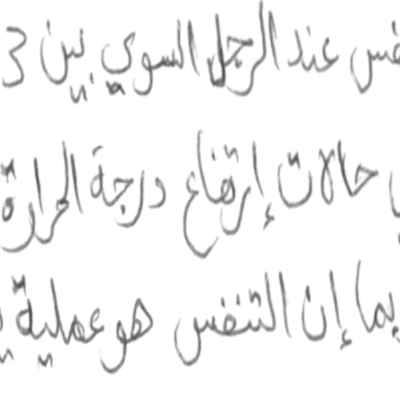 نفس عند الرجل السوي بين 3
ي حالات إرتفاع درجة الحرارة
بما إن التنفس هو عملية ي